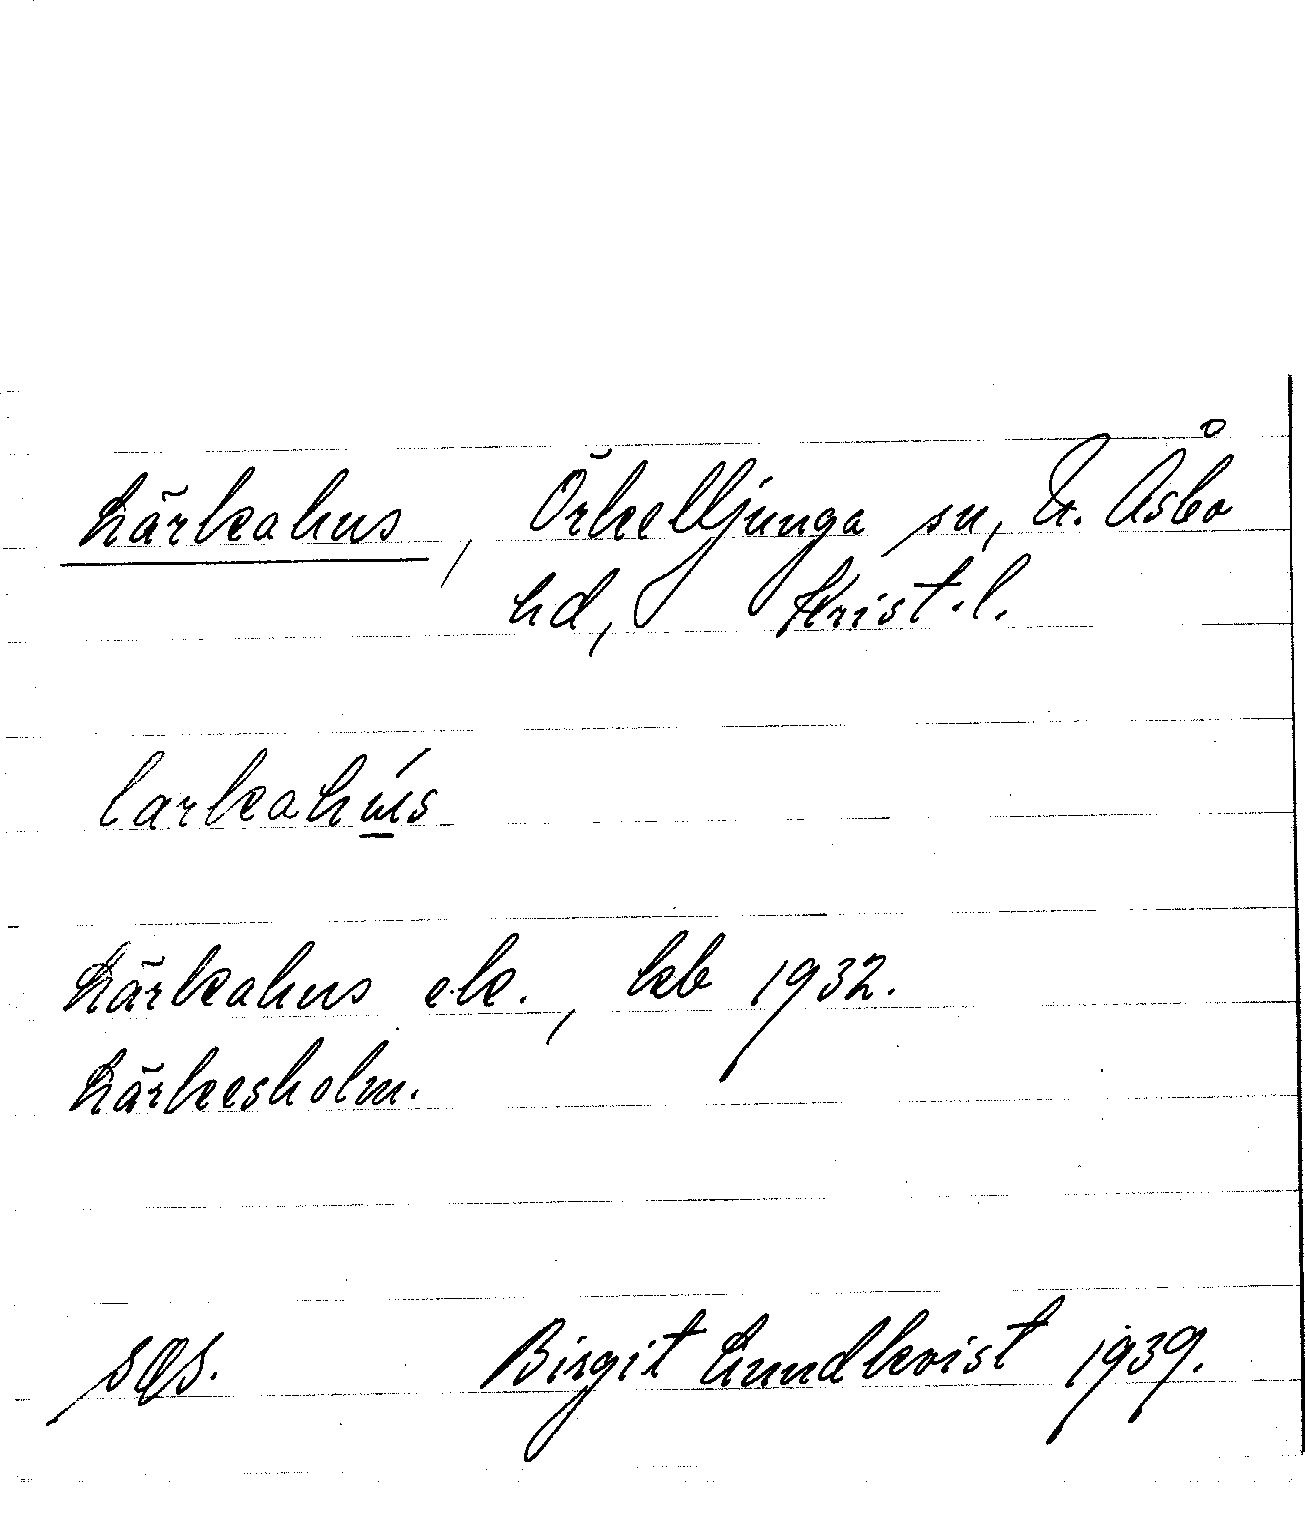 Lärkahus, Örkelljunga sn, N. Åsbo
hd, Krist. l.
larkahú̲s
Lärkahus ek., kb 1932.
Lärkesholm.
Birgit Lundkvist 1939.